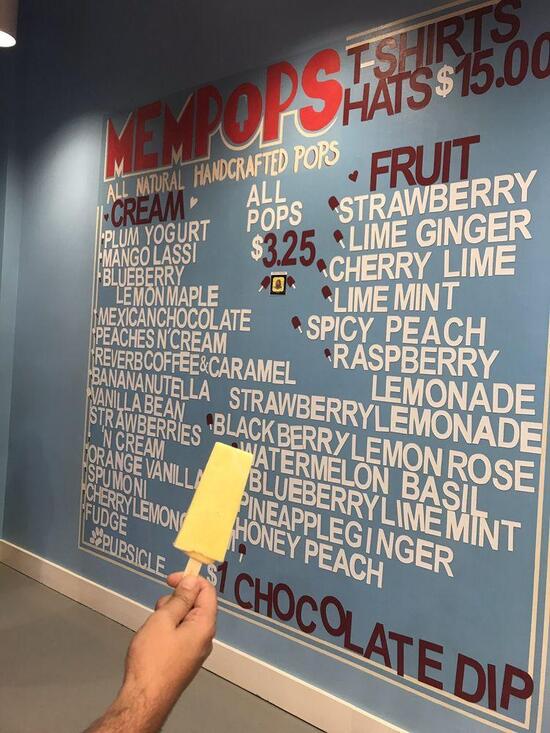 MEMPOPS
T-SHIRTS
HATS $15.00
ALL NATURAL HANDCRAFTED POPS
CREAM
PLUM YOGURT
MANGO LASSI
BLUEBERRY
LEMON MAPLE
MEXICAN CHOCOLATE
PEACHES N' CREAM
REVERB COFFEE & CARAMEL
BANANA NUTELLA
VANILLA BEAN
STRAWBERRIES
'N CREAM
ORANGE VANILLA
SPUMONI
CHERRY
FUDGE
PUPSICLE
ALL
POPS
$3.25
FRUIT
STRAWBERRY
LIME GINGER
CHERRY LIME
LIME MINT
SPICY PEACH
RASPBERRY
LEMONADE
STRAWBERRY LEMONADE
BLACKBERRY LEMON ROSE
WATERMELON BASIL
BLUEBERRY LIME MINT
PINEAPPLE GINGER
HONEY PEACH
$1 CHOCOLATE DIP